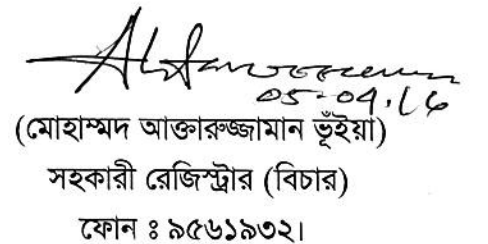 05-04.16
(মোহাম্মদ আক্তারুজ্জামান ভূঁইয়া)
সহকারী রেজিস্ট্রার (বিচার)
ফোন ঃ ৯৫৬১৯৩২।